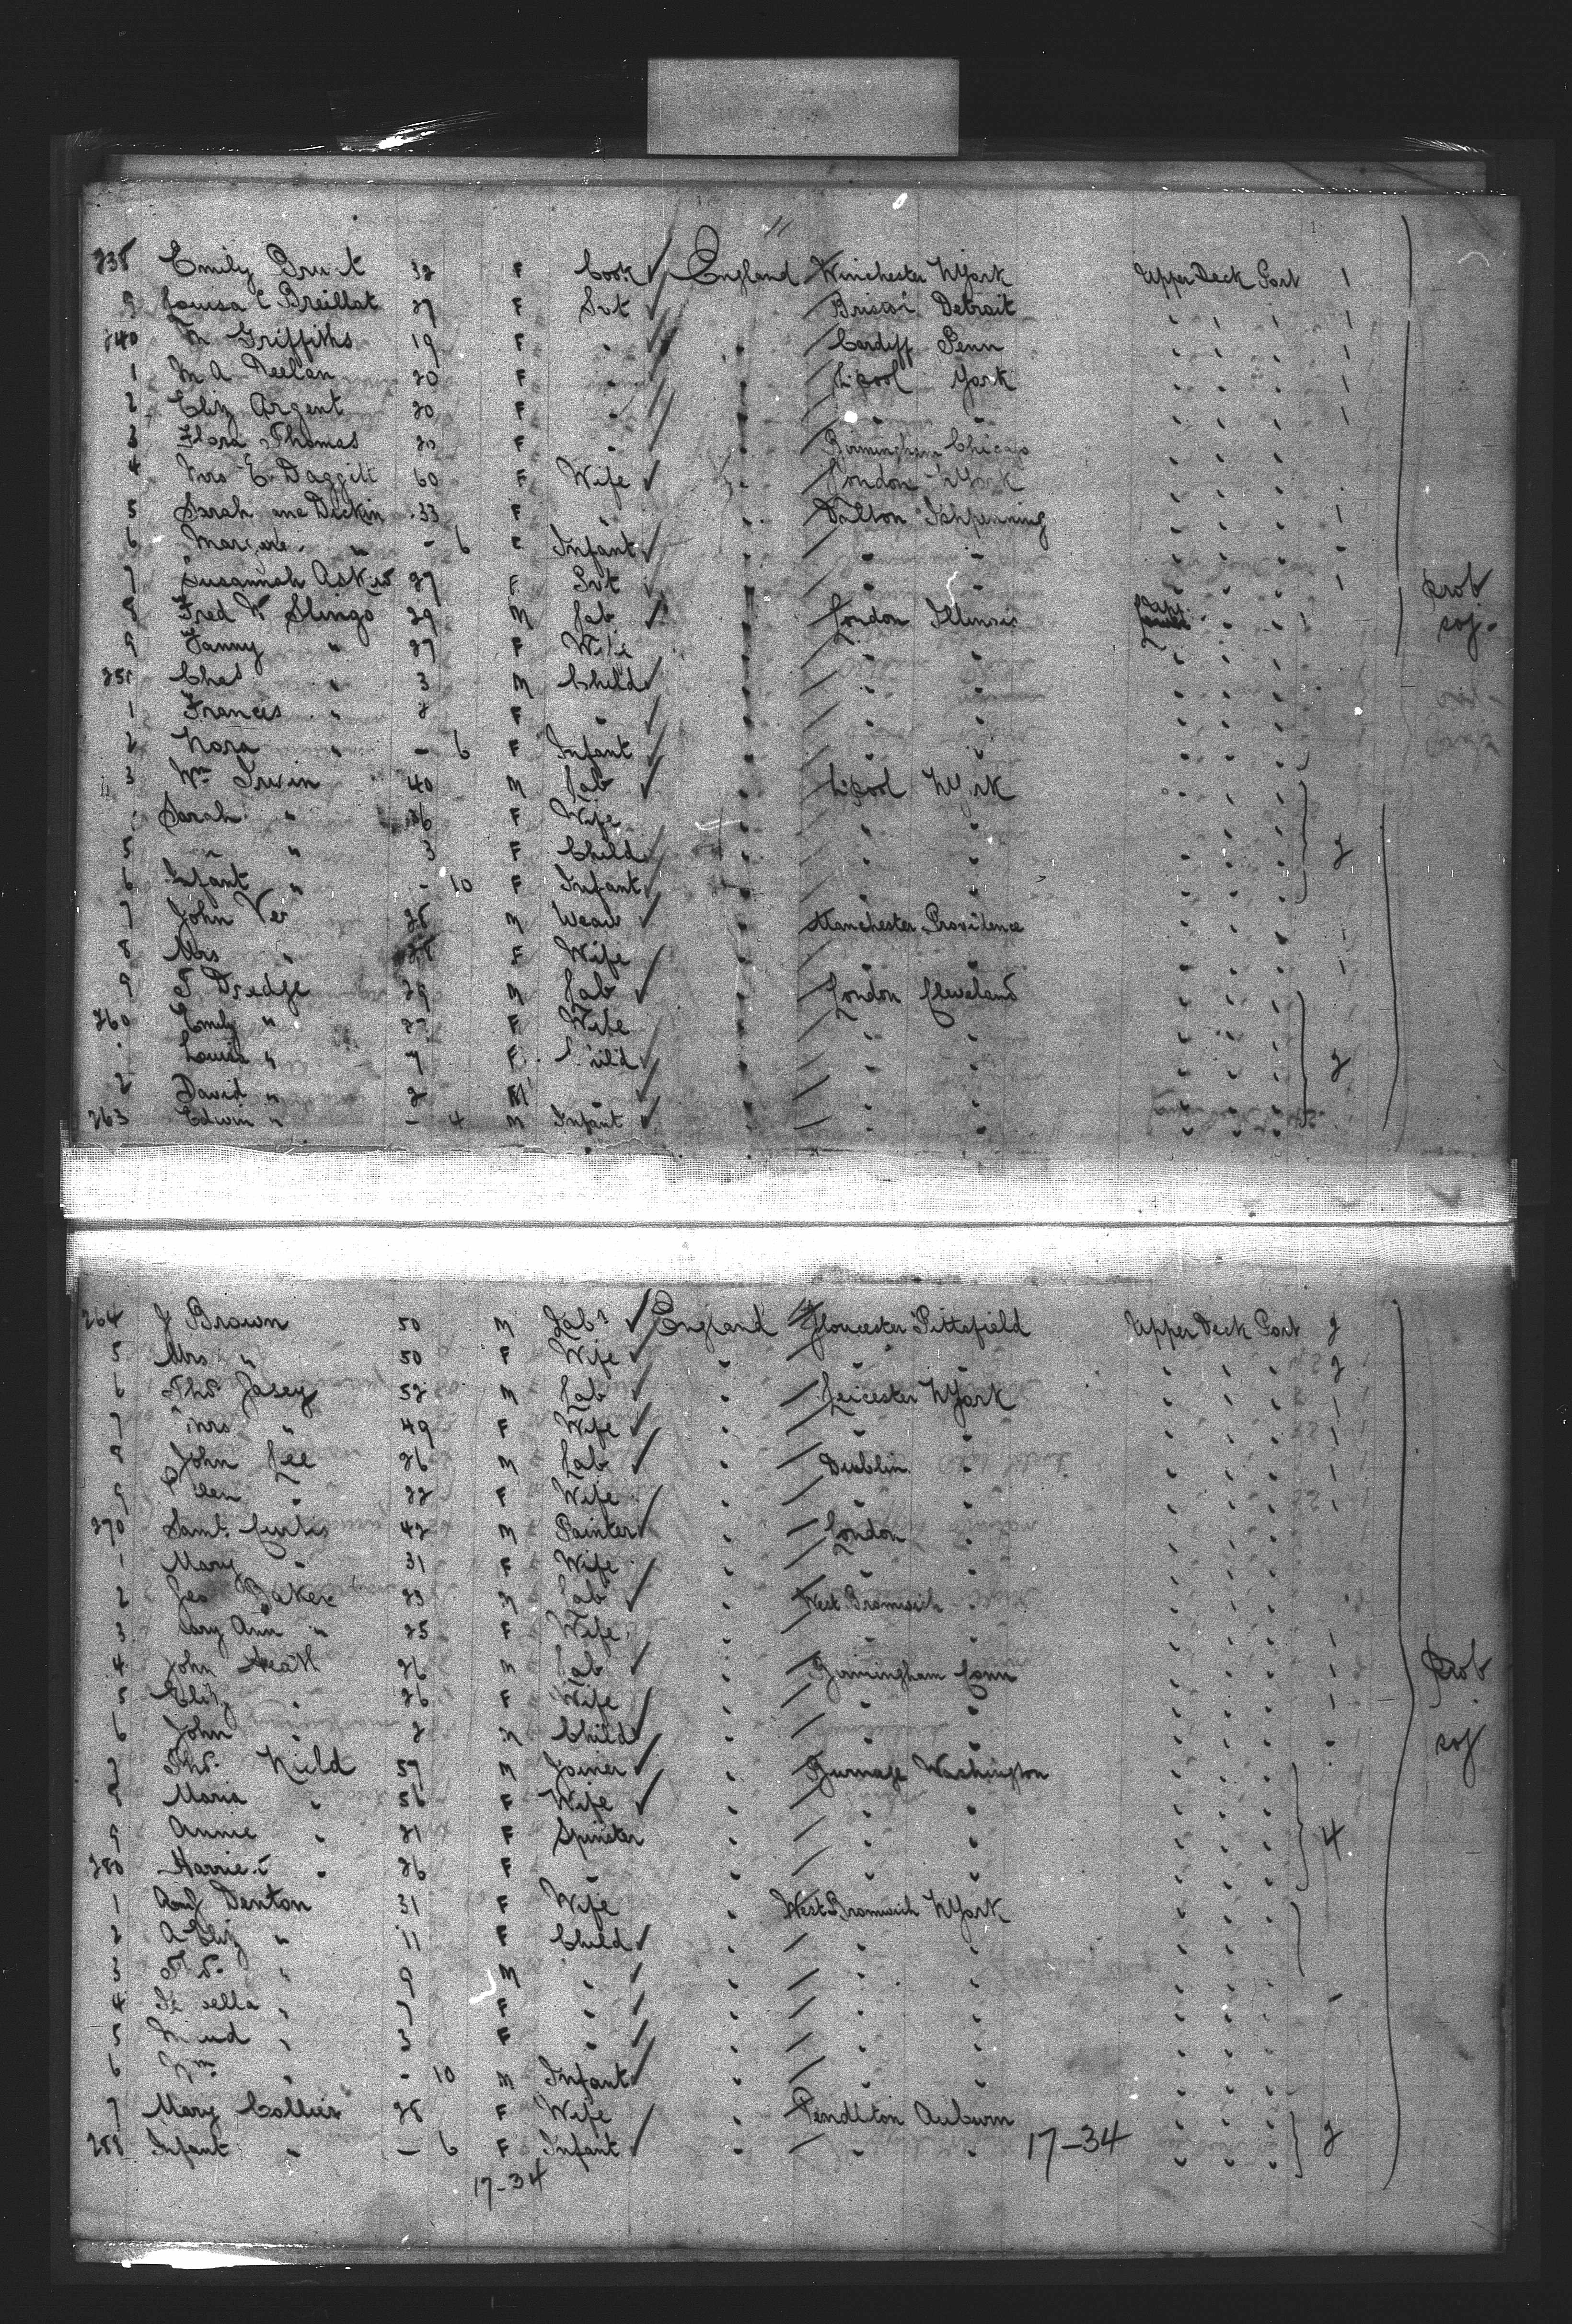 11
238 Emily Bru t 32 F Cook England Winchester NYork Upper Deck Port 1
9 Louisa C Breillat 27 F Svt Bristol Detroit " " " 1
240 M Griffiths 19 F " " Cardiff Penn " " " 1
1 M A Deelan 20 F " " L'pool York " " " 1
2 Eliz Argent 20 F " " " " " " " 1
3 Flora Thomas 20 F " " Birmingham Chicago " " "
4 Mrs E. Daggitt 60 F Wife " London NYork " " "
5 Sarah ane Dickin 33 F " " Dalton Ishpenning " " " 1
6 " - 6 F Infant " " " " " " -
7 Susannah Askew 27 F Svt " " " " " " 1 Prob
8 Fred W Slingo 29 M Lab " London Illinois " " soj.
9 Fanny " 27 F Wife " " " " " "
250 Chas " 3 M Child " " " " " "
1 Frances " 2 F " " " " " " "
2 Nora " - 6 F Infant " " " " " "
3 Wm Irwin 40 M Lab " L'pool NYork " " "
Sarah " 36 F Wife " " " " " "
5 " " 3 F Child " " " " " " 2
6 Infant " - 10 F Infant " " " " " "
7 John Ver 28 M Weav " Manchester Providence " " " 1
8 Mrs " 28 F Wife " " " " " " 1
9 T Dredge 29 M Lab " London Cleveland " " "
260 Emily " 27 F Wife " " " " " "
Louisa " 7 F Child " " " " " " 2
2 David " 2 M " " " " " " "
263 Edwin " - 4 M Infant " " " " " "
264 J Brown 50 M Labr England Gloucester Pittsfield Upper Deck Port 2
5 Mrs " 50 F Wife " " " " " " 2
6 Thos Jasey 52 M Lab " Leicester NYork " " " 1
7 Mrs " 49 F Wife " " " " " " 1
8 John Lee 26 M Lab " Dublin " " " " 1
9 Ellen " 22 F Wife " " " " " " 1
270 Saml. Curtis 42 M Painter " London " " " "
1 Mary " 31 F Wife " " " " " "
2 Geo Baker 23 M Lab " West Bromwich " " " "
3 ary Ann " 25 F Wife " " " " " " 1
4 John Heath 26 M Lab " Birmingham Conn " " " 1 Prob
5 Eliz " 26 F Wife " " " " " " 1
6 John " 2 M Child " " " " " " - soj
7 Thos. Nield 57 M Joiner " Burnage Washington " " "
8 Maria " 56 F Wife " " " " " "
9 Annie " 21 F Spinster " " " " " " 4
280 Harriet " 26 F " " " " " " "
1 Denton 31 F Wife " West Bromwich NYork " " "
2 A Eliz " 11 F Child " " " " " "
3 Thos. " 9 M " " " " " " "
4 Is bella " 7 F " " " " " " " -
5 M ud " 3 F " " " " " " "
6 Wm " - 10 M Infant " " " " " "
7 Mary Collier 28 F Wife " Pendlton Auburn " " "
288 Infant " - 6 F Infant " " " 17-34 " " " 2
17-34